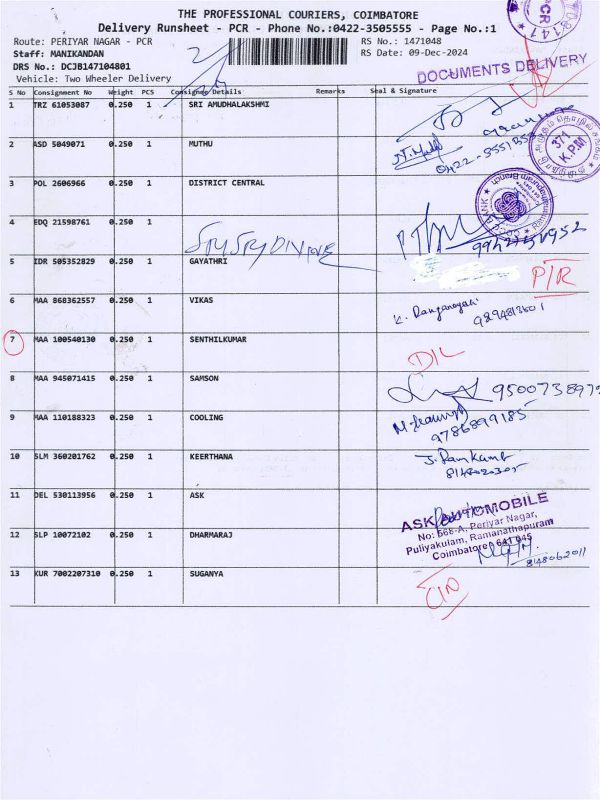 THE PROFESSIONAL COURIERS, COIMBATORE
Delivery Runsheet - PCR - Phone No.:0422-3505555 - Page No.:1
Route: PERIYAR NAGAR - PCR
RS No.: 1471048
Staff: MANIKANDAN
RS Date: 09-Dec-2024
DRS No.: DCJB147104801
Vehicle: Two Wheeler Delivery
DOCUMENTS DELIVERY
PCR
147
S No Consignment No Weight PCS Consignee Details Remarks Seal & Signature
1 TRZ 61053087 0.250 1 SRI AMUDHALAKSHMI
2 ASD 5049071 0.250 1 MUTHU
371
K.P.M
3 POL 2606966 0.250 1 DISTRICT CENTRAL
4 EDQ 21598761 0.250 1
5 IDR 505352829 0.250 1 GAYATHRI
P/R
6 MAA 868362557 0.250 1 VIKAS
7 MAA 100540130 0.250 1 SENTHILKUMAR
D/L
8 MAA 945071415 0.250 1 SAMSON
9 MAA 110188323 0.250 1 COOLING
9786899185
10 SLM 360201762 0.250 1 KEERTHANA
11 DEL 530113956 0.250 1 ASK
ASK AUTOMOBILE
No: 566-A, Periyar Nagar,
Puliyakulam, Ramanathapuram
Coimbatore 641 045
12 SLP 10072102 0.250 1 DHARMARAJ
8148062011
13 KUR 7002207310 0.250 1 SUGANYA